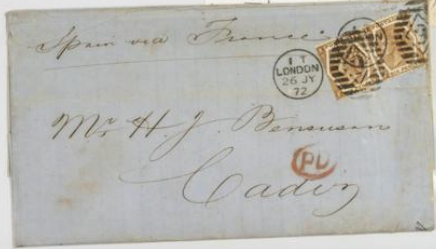 Spain via France
1 T
LONDON
26 JY
72
Mr. H. J. Bensusan
PD
Cadiz